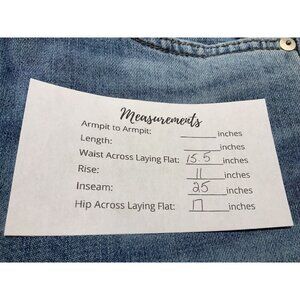 Measurements
Armpit to Armpit: ______ inches
Length: ______ inches
Waist Across Laying Flat: 15.5 inches
Rise: 11 inches
Inseam: 25 inches
Hip Across Laying Flat: 17 inches